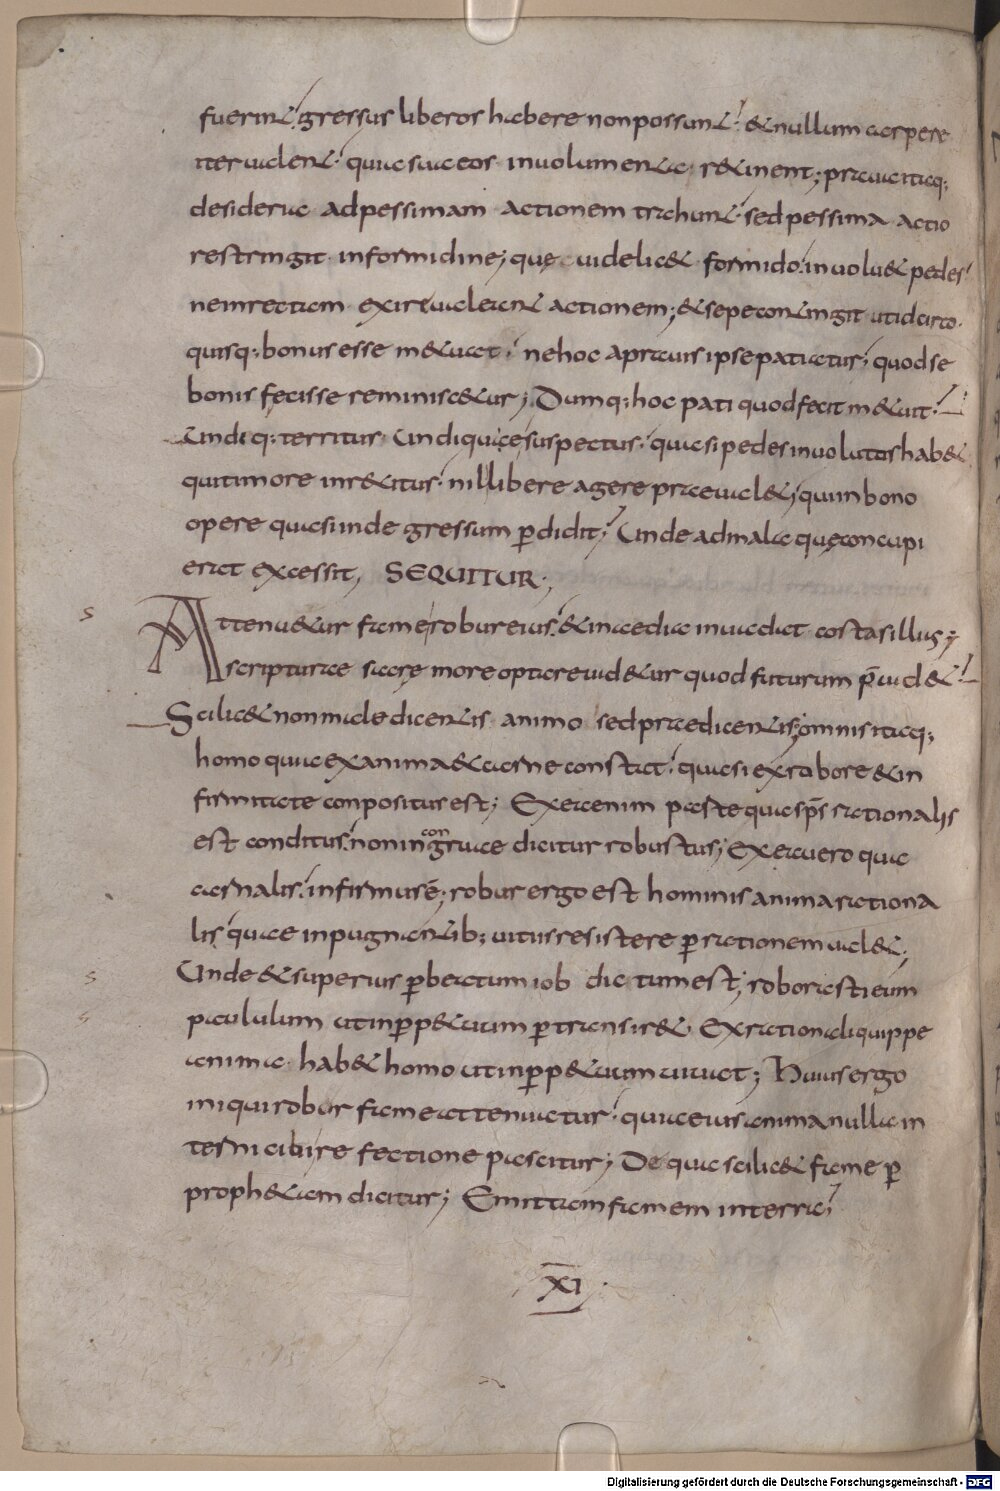 fuerint gressus liberos habere non possunt. & nullum carpere
iter ualent. quia suae eos inuolumenta retinent; praua itaq;
desideria ad pessimam actionem trahunt. sed pessima actio
restringit in formidine; quę uidelic& formido. inuolu& pedes
ne in rectam exire ualeant actionem; & sepe contingit ut idcirco.
quisq; bonus esse m&uat. ne hoc a prauis ipse patiatur; quod se
bonis fecisse reminisc&ur; Dumq; hoc pati quod fecit m&uit.
Undiq; territus. Undiq; suspectus. quasi pedes inuolutos hab&
qui timore inr&itus. nil libere agere praeual&; quia in bono
opere quasi inde gressum p̄didit; Unde ad mala quę concupi
erat excessit; SEQUITUR;
Attenu&ur fame robur eius. & inaedia inuadat costas illius;
scripturae sacrę more optare uid&ur quod futurum p̄uid&.
Scilic& non maledicentis animo sed praedicentis; omnis itaq;
homo quia ex anima & carne constat. quasi ex robore & in
firmitate conpositus est; Ex ea enim parte qua sp̄s rationalis
est conditus. non incongruae dicitur robustus; Ex ea uero qua
carnalis. infirmus ē; robur ergo est hominis anima rationa
lis quae inpugnantib; uitiis resistere p̄ rationem ual&;
Unde & superius p̄ beatum iob dictum est; roborasti eum
paululum ut in p̄p&uum p̄transir&; Ex rationali quippe
anima. hab& homo ut in p̄p&uum uiuat; Huius ergo
iniqui robur fame attenuatur. quia eius anima nulla in
terni cibi refectione pascitur; De qua scilic& fame p̄
proph&am dicitur; Emittam famem in terra;
XI
Digitalisierung gefördert durch die Deutsche Forschungsgemeinschaft - DFG